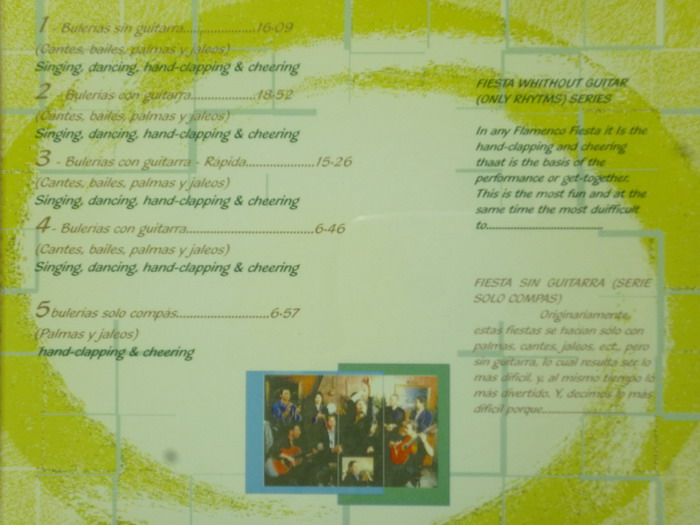 1 - Bulerias sin guitarra..................16-09
(Cantes, bailes, palmas y jaleos)
Singing, dancing, hand-clapping & cheering
2 - Bulerias con guitarra................18-52
(Cantes, bailes, palmas y jaleos)
Singing, dancing, hand-clapping & cheering
3 - Bulerias con guitarra - Rápida.................15-26
(Cantes, bailes, palmas y jaleos)
Singing, dancing, hand-clapping & cheering
4 - Bulerias con guitarra...............................6-46
(Cantes, bailes, palmas y jaleos)
Singing, dancing, hand-clapping & cheering
5 bulerias solo compás.......................6-57
(Palmas y jaleos)
hand-clapping & cheering
FIESTA WHITHOUT GUITAR
(ONLY RHYTMS) SERIES
In any Flamenco Fiesta it Is the
hand-clapping and cheering
thaat is the basis of the
performance or get-together.
This is the most fun and at the
same time the most duifficult
to.............................
FIESTA SIN GUITARRA (SERIE
SOLO COMPAS)
Originariamente,
estas fiestas se hacían sólo con
palmas, cantes, jaleos, ect., pero
sin guitarra, lo cual resulta ser lo
mas difícil, y, al mismo tiempo lo
más divertido. Y, decimos lo más
difícil porque..........................